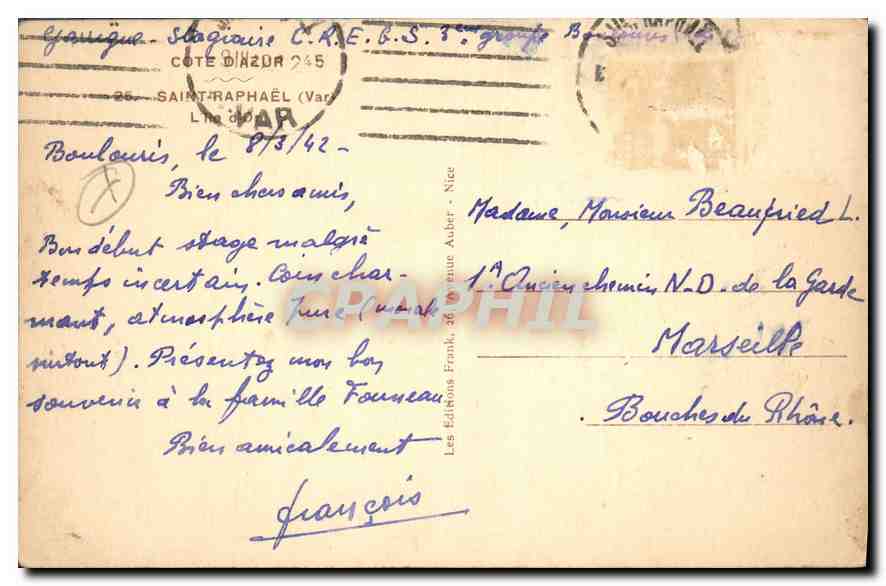 Stagiaire C.R.E.G.S. 3ème groupe Boulouris
COTE D'AZUR
25. SAINT-RAPHAËL (Var)
L'Ile d'Or
VAR
Boulouris, le 8/3/42 -
Bien chers amis,
Bon début stage malgré
temps incertain. Coin char-
mant, atmosphère pure (morale
surtout). Présentez mon bon
souvenir à la famille Fonneau
Bien amicalement
françois
Les Editions Frank, 26, Avenue Auber - Nice
Madame, Monsieur Beaufried L.
1A Ancien chemin N.-D. de la Garde
Marseille
Bouches du Rhône.
CPAPHIL